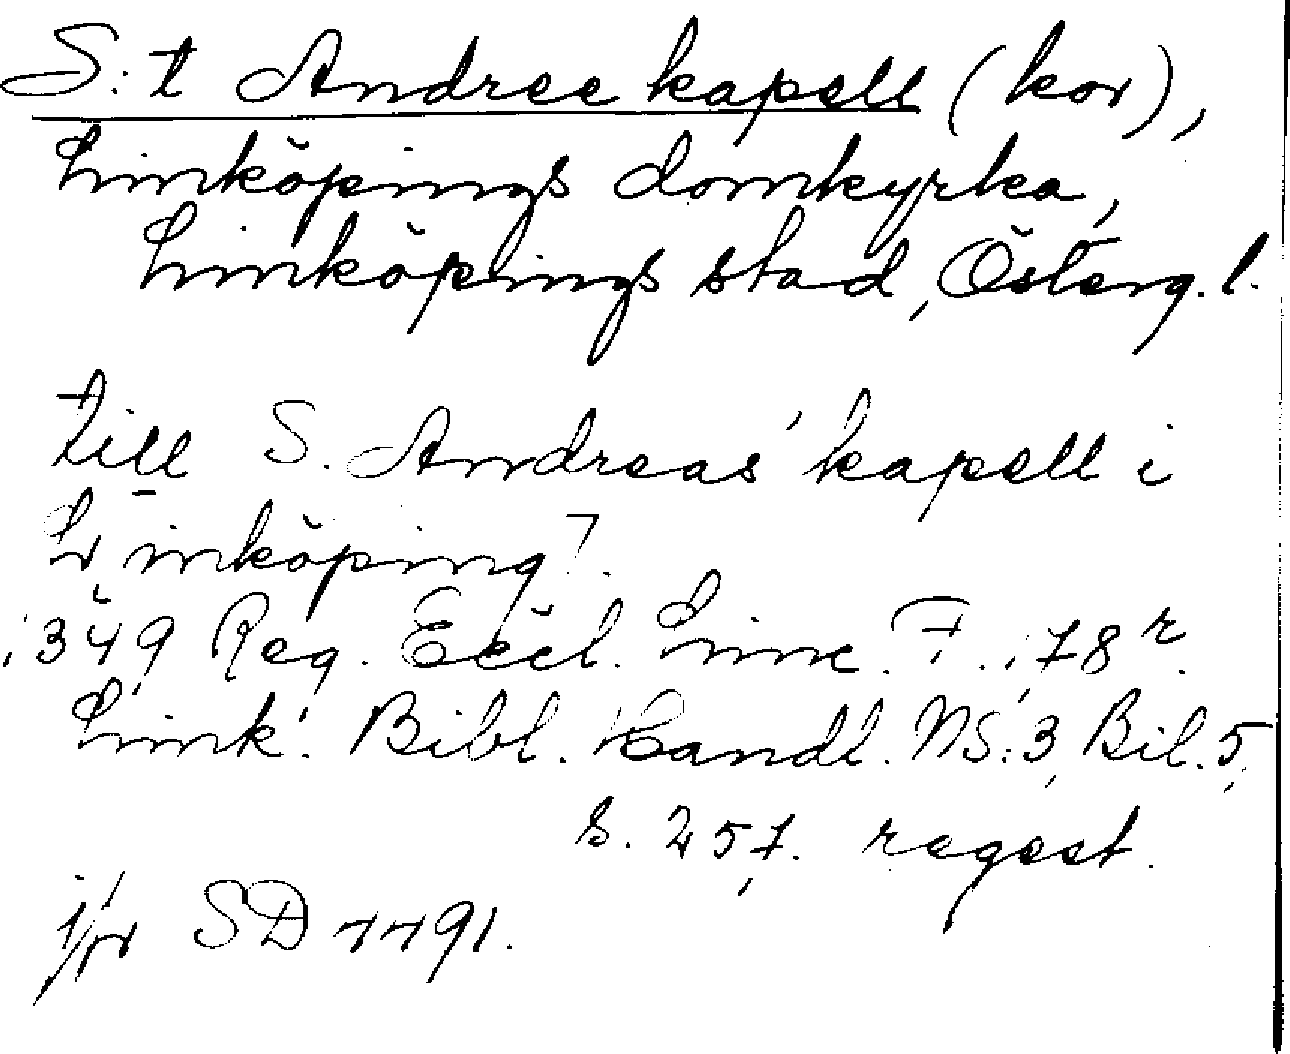 S:t Andree kapell (kor),
Linköpings domkyrka,
Linköpings stad, Österg. l.
till S. Andreas' kapell i
Linköping?
1349 Reg. Eccl. Linc. F., 78r.
Link. Bibl. Handl. NS: 3, Bil. 5,
s. 257. regest.
jfr SD 4491.